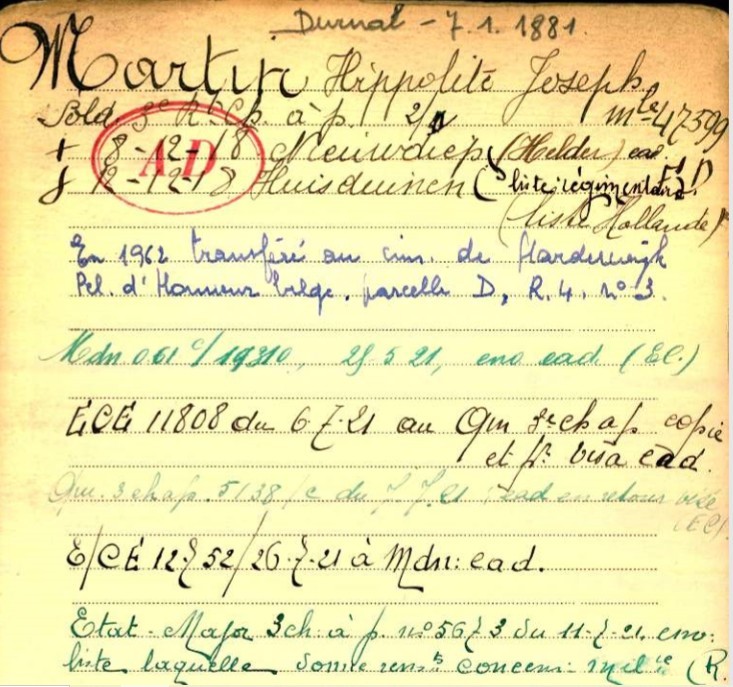 Durnal - 7.1.1881.
Martin Hippolite Joseph
Sold. 3e Ch. à p. 2/ mle 47599
+ 8-12-18 Nieuwdiep (Helder) cad.
12-12-18 Huisduinen (liste régimentaire)
AD
(liste Hollande)
En 1962 transféré au cim. de Harderwijk
Pel. d'Honneur belge, parcelle D, R. 4. n° 3.
Mdn 061 c/19310, 28 5 21, cad (EC.)
ECE 11808 du 6-7-21 au Qm 3e ch à p copie
et pr visa cad.
Qm. 3 ch à p. 5138/c du 7.7.21 cad en retour visé
(EC)
E/CE 12752/26-7-21 à Mdn: cad.
Etat-Major 3 ch à p. n° 5673 du 11-7-21, env:
liste laquelle donne rens ts concern: (R.